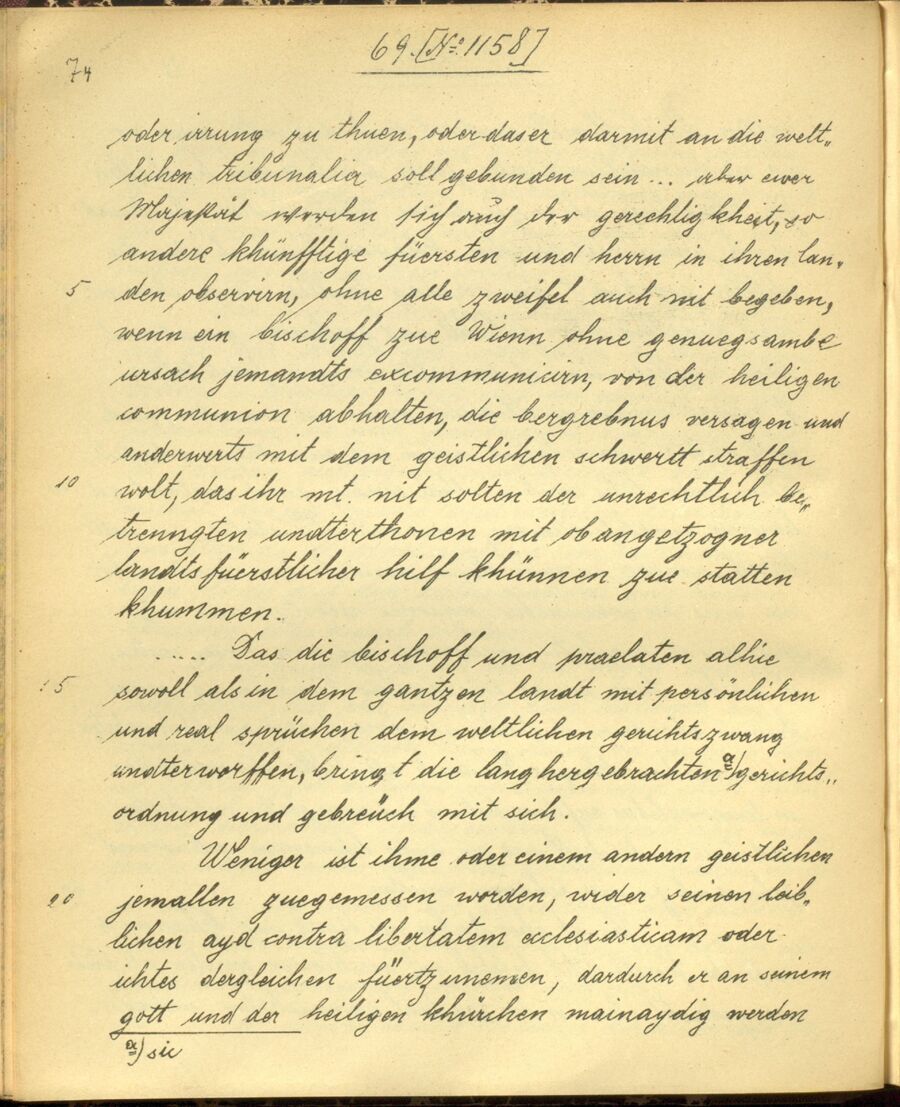 69. [No. 1158]
74
oder irrung zu thuen, oder daser darmit an die welt„
lichen tribunalia soll gebunden sein ... aber ewer
Majestät werden sich auch der gerechtigkheit, so
andere khünfftige füersten und herrn in ihren lan„
5 den observirn, ohne alle zweifel auch nit begeben,
wenn ein bischoff zue Wienn ohne genuegsambe
ursach jemandts excommunicirn, von der heiligen
communion abhalten, die bergrebnus versagen und
anderwerts mit dem geistlichen schwertt straffen
10 wolt, das ihr mt. nit solten der unrechtlich be„
trenngten undterthonen mit obangetzogner
landtsfüerstlicher hilf khünnen zue statten
khummen.
..... Das die bischoff und praelaten alhie
15 sowoll als in dem gantzen landt mit persönlichen
und real sprüchen dem weltlichen gerichtszwang
undterworffen, bringt die langhergebrachten a) gerichts„
ordnung und gebreüch mit sich.
Weniger ist ihme oder einem andern geistlichen
20 jemallen zuegemessen worden, wider seinen leib„
lichen ayd contra libertatem ecclesiasticam oder
ichtes dergleichen füertzunemen, dardurch er an seinem
gott und der heiligen khürchen mainaydig werden
a) sic